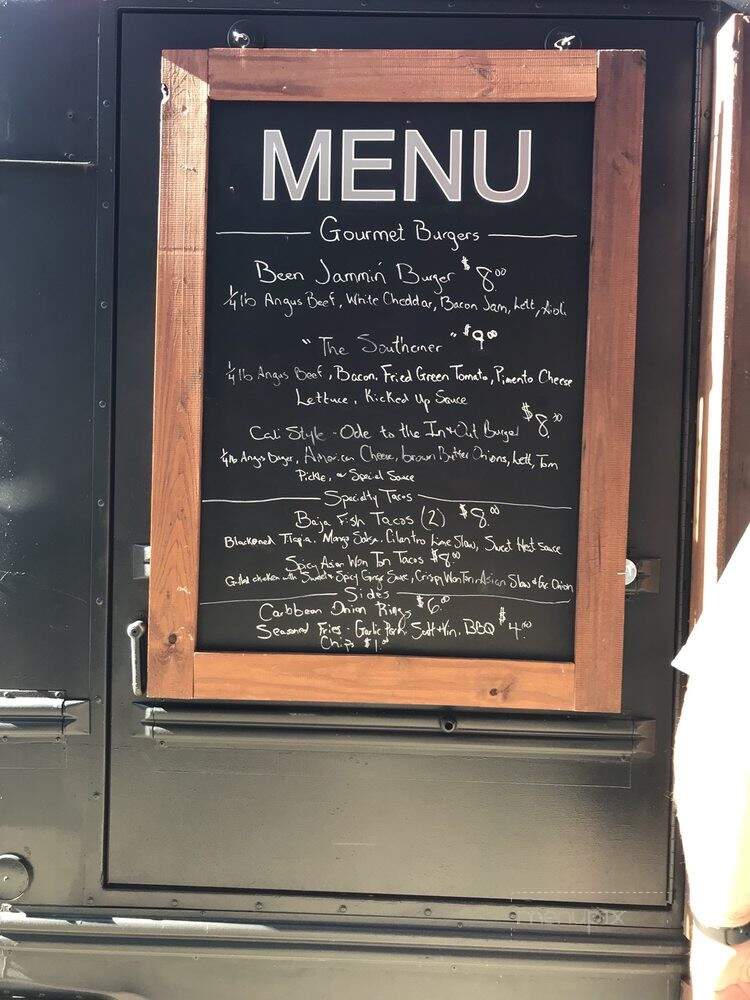 MENU
Gourmet Burgers
Been Jammin' Burger $8.00
1/4 lb Angus Beef, White Cheddar, Bacon Jam, Lett, Aioli
"The Southerner" $9.00
1/4 lb Angus Beef, Bacon, Fried Green Tomato, Pimento Cheese
Lettuce, Kicked Up Sauce
Cali Style - Ode to the In+Out Burger $8.
1/4 lb Angus Burger, American Cheese, brown Butter Onions, Lett, Tom
Pickle, Special Sauce
Specialty Tacos
Baja Fish Tacos (2) $8.00
Blackened Tilapia, Mango Salsa, Cilantro Lime Slaw, Sweet Heat Sauce
Spicy Asian Won Ton Tacos $8.00
Grilled chicken with Sweet + Spicy Ginger Sauce, Crispy Won Ton, Asian Slaw + Gr. Onion
Sides
Caribbean Onion Rings $6.00
Seasoned Fries - Garlic Parm, Salt+Vin, BBQ $4.00
Chips $1.00
menupix